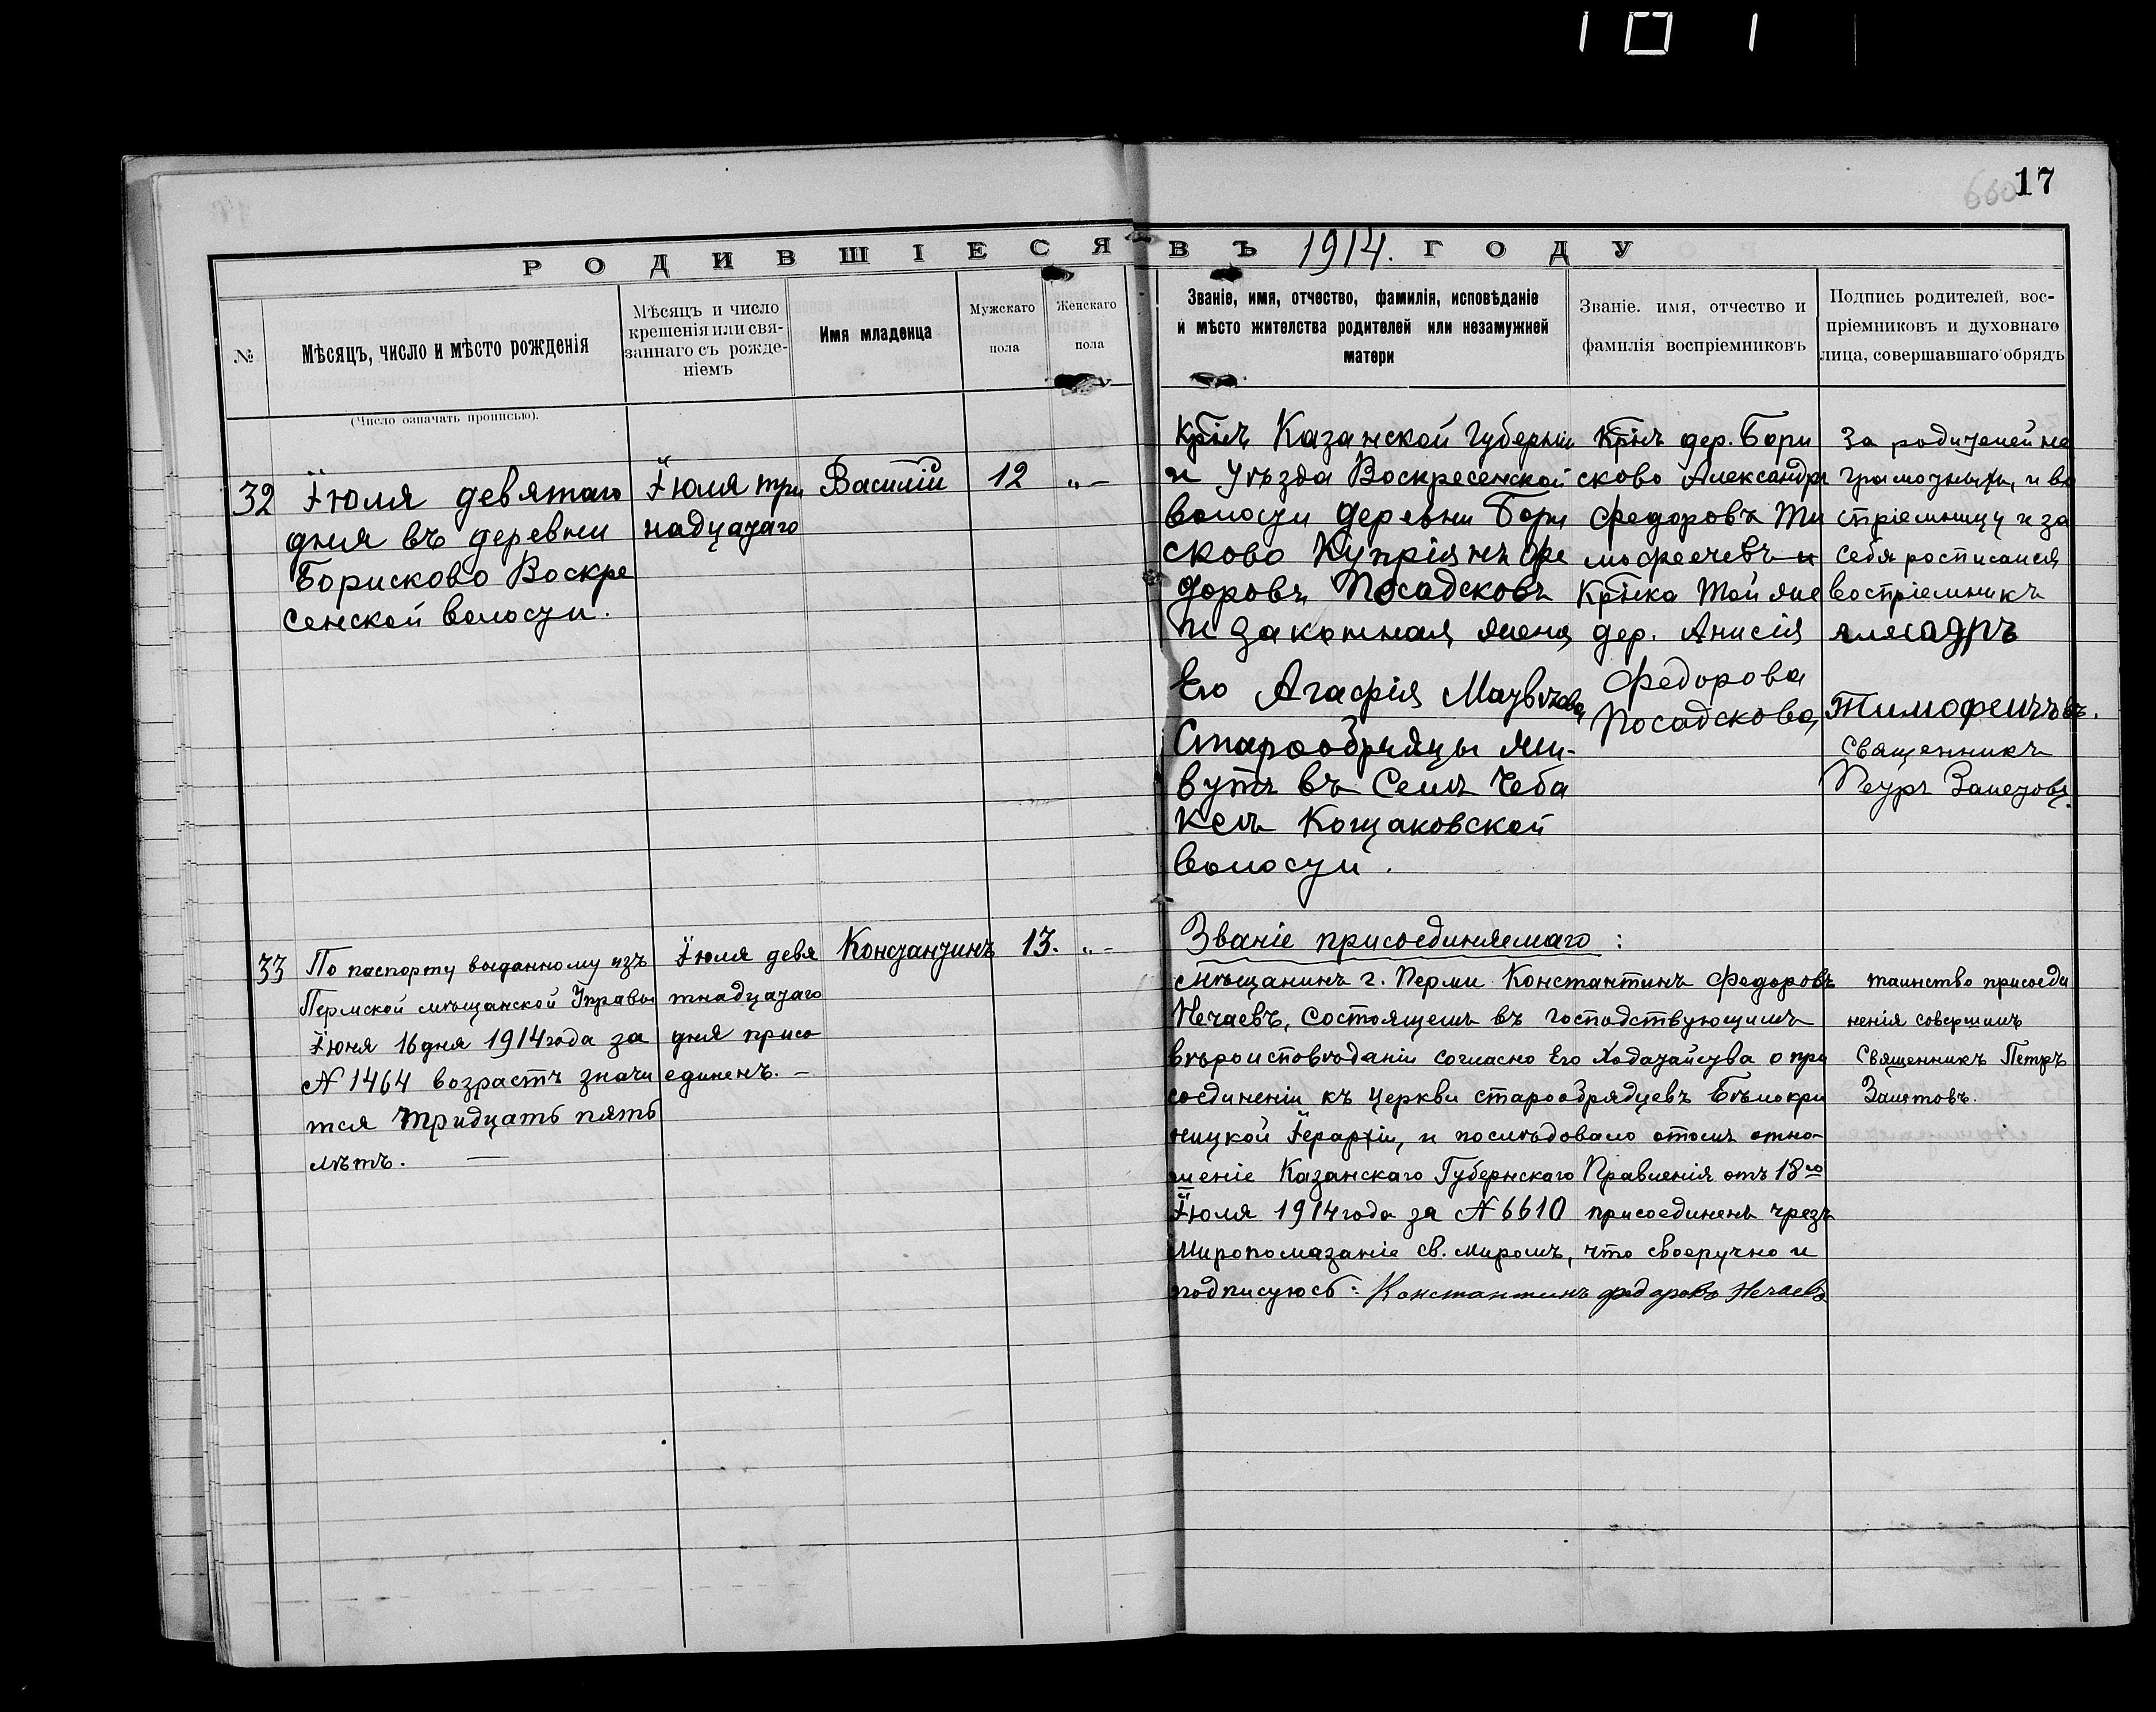 101
660 17
РОДИВШІЕСЯ ВЪ 1914. ГОДУ
№
Мѣсяцъ, число и мѣсто рожденія
Мѣсяцъ и число
крещенія или свя-
заннаго съ рожде-
ніемъ
Имя младенца
Мужскаго
пола
Женскаго
пола
Званіе, имя, отчество, фамилія, исповѣданіе
и мѣсто жителства родителей или незамужней
матери
Званіе. имя, отчество и
фамилія воспріемниковъ
Подпись родителей, вос-
пріемниковъ и духовнаго
лица, совершавшаго обрядъ
(Число означать прописью).
32
Іюля девятаго
дня въ деревни
Борисково Воскре
сенской волости.
Іюля три
надцатаго
Василій
12
„ –
Крѣнъ Казанской Губерніи
и Уѣзда Воскресенской
волости деревни Бори
сково Купріянъ Фе
доровъ Посадсковъ
и законная жена
Его Агафія Матвѣева
Старообрядцы жи-
вутъ въ Селѣ Чеба
ксъ Кощаковской
волости.
Крѣнъ дер. Бори
сково Александръ
Федоровъ Ти
мофеечевъ и
Крѣнка той же
дер. Анисія
Федорова
Посадскова,
За родителей не
грамотныхъ, и во
спріемницу и за
себя росписался
воспріемникъ
алесадръ
Тимофеичъвъ.
Священникъ
Петръ Залетовъ.
33
По паспорту выданному изъ
Пермской мѣщанской Управы
Іюня 16 дня 1914 года за
№ 1464 возрастъ значи
тся тридцать пять
лѣтъ. —
Іюля девя
тнадцатаго
дня присо
единенъ. –
Константинъ
13.
„ –
Званіе присоединяемаго :
Мѣщанинъ г. Перми Константинъ Федоровъ
Нечаевъ, состоящемъ въ господствующимъ
вѣроисповѣданіи согласно Его Ходатайства о при
соединеніи къ церкви старообрядцевъ Бѣлокри
ницкой Іерархіи, и послѣдовало отомъ отно-
шеніе Казанскаго Губернскаго Правленія отъ 18го
Іюля 1914 года за № 6610 присоединенъ чрезъ
Миропомазаніе св. миромъ, что своеручно и
подписуюсь: Константинъ федоровъ Нечаевъ
таинство присоеди
ненія совершилъ
Священникъ Петръ
Залѣтовъ.